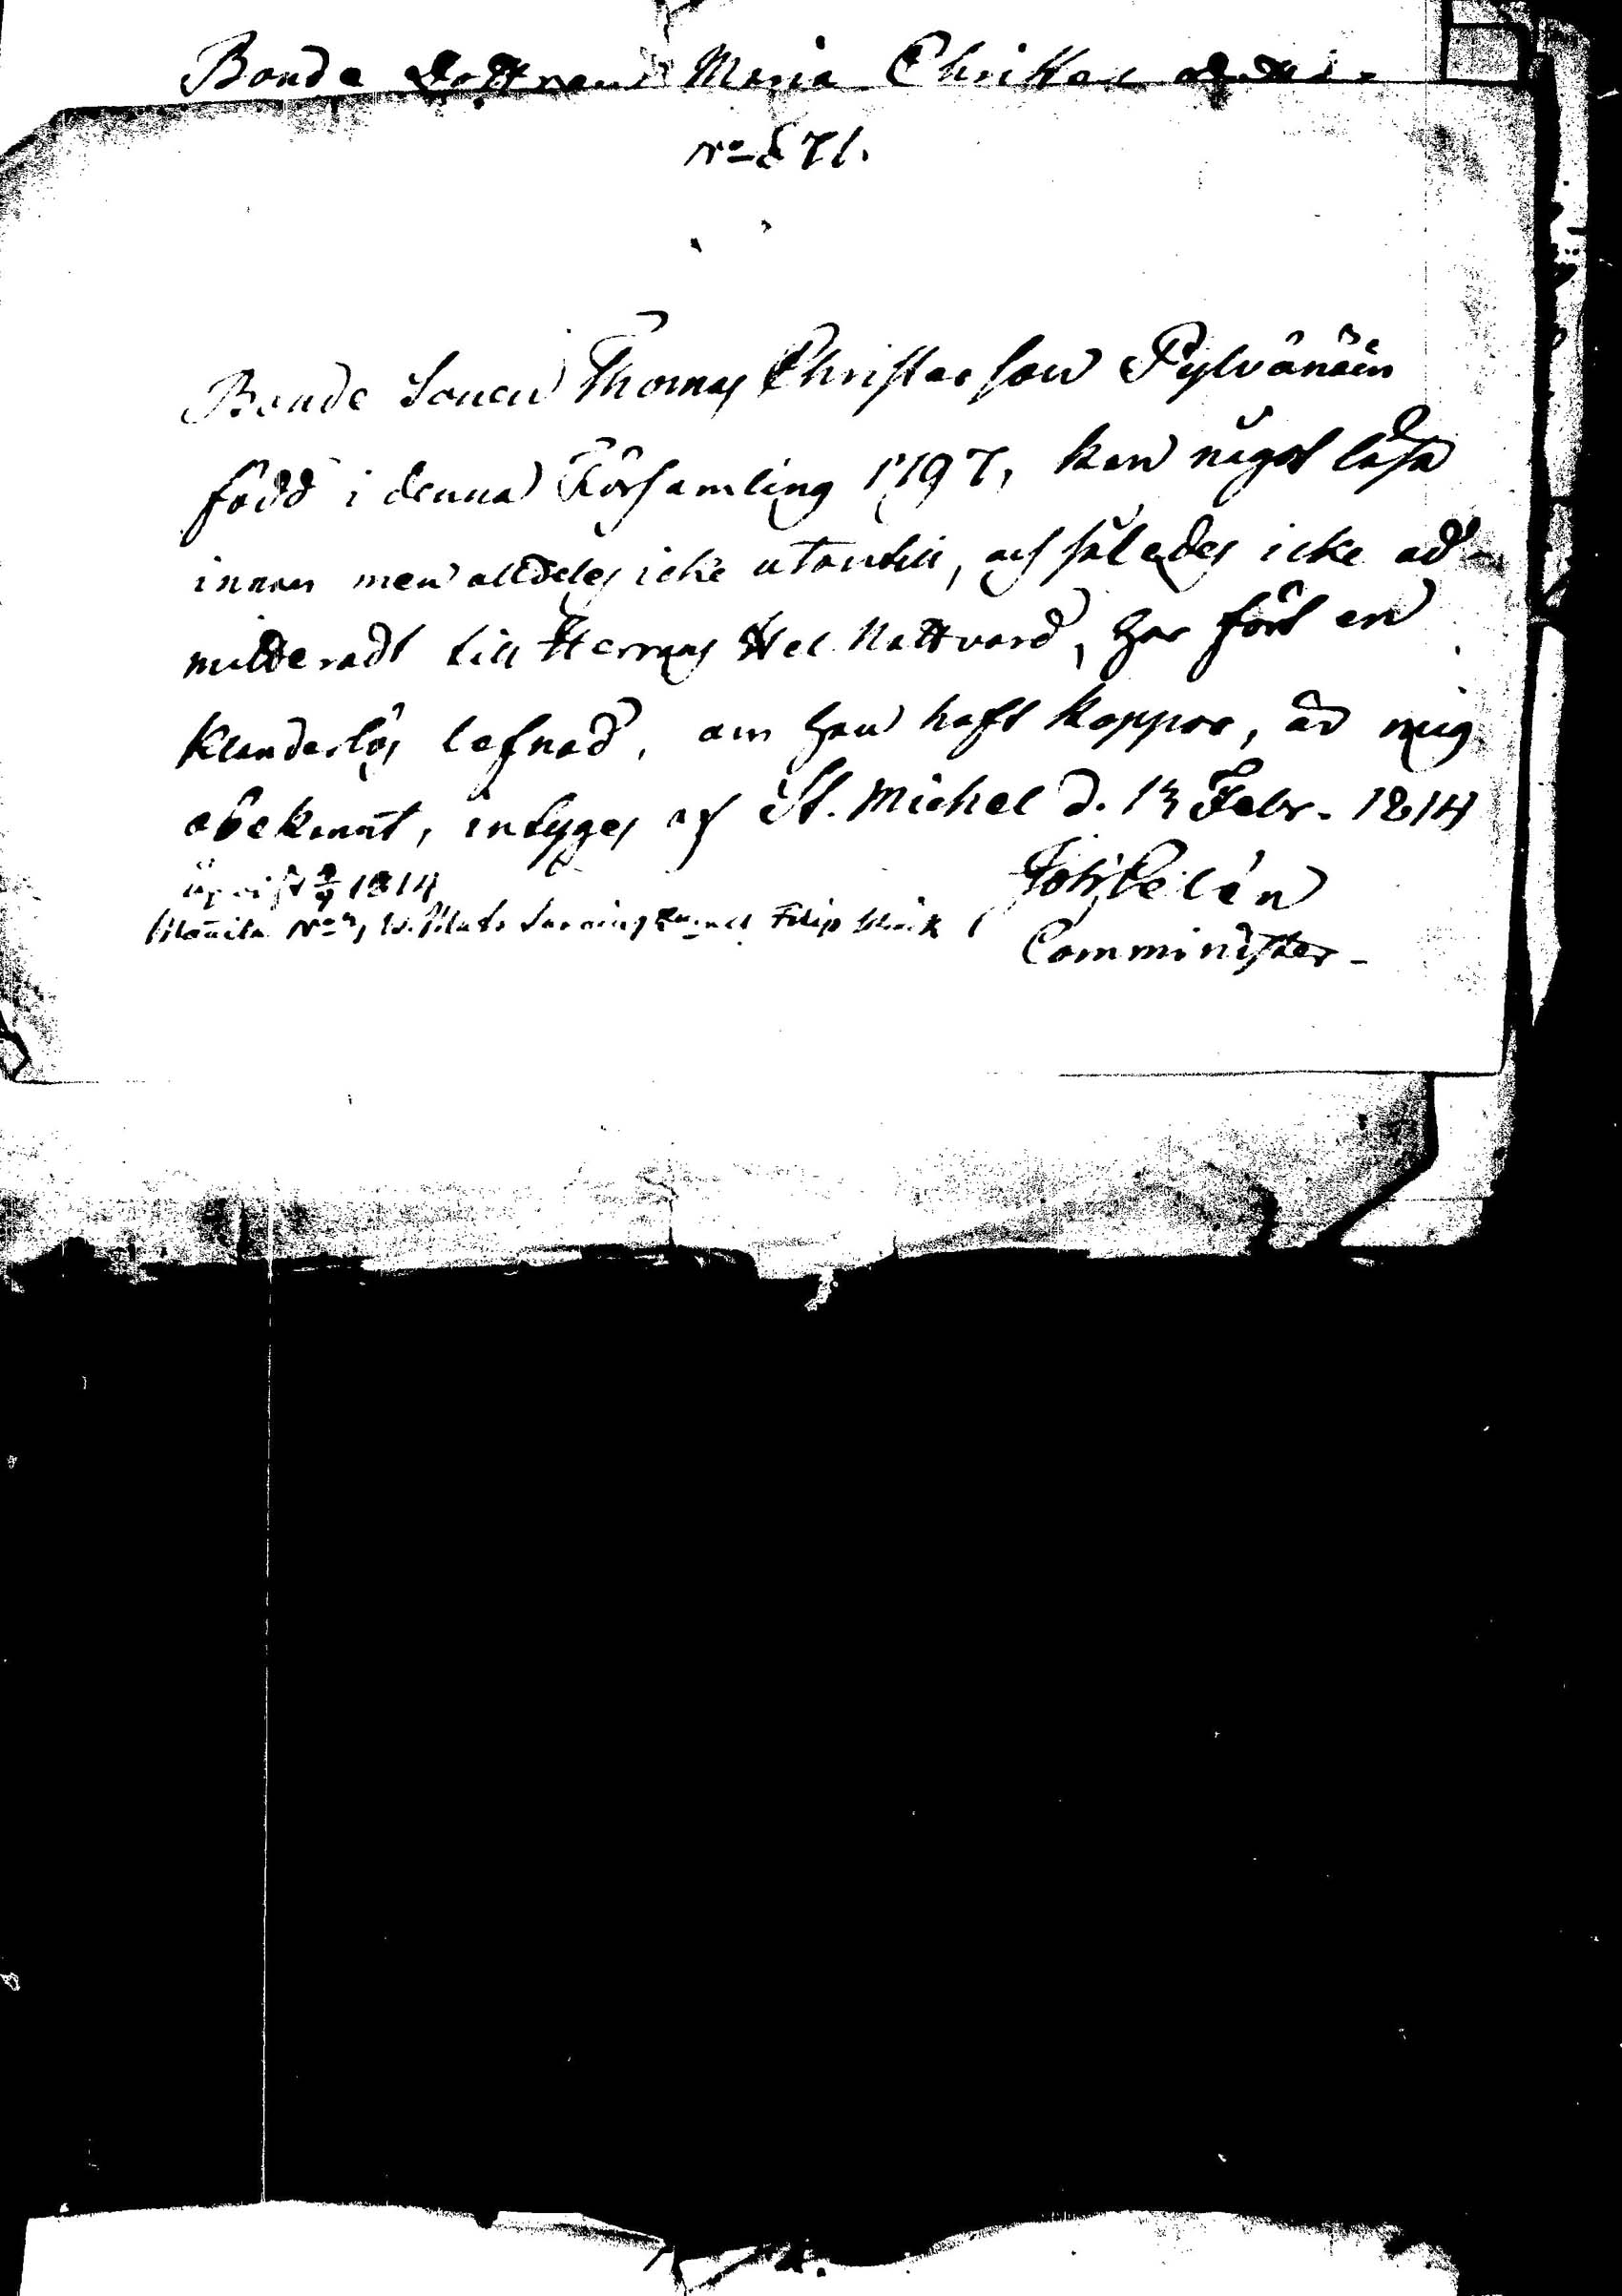 Bonde Dottren Maria Christers
No 571.
Bonde Sonen Thomas Christersson Pylvänäin
född i denna Församling 1797, kan något läsa
innan men alldeles icke utantill, och således icke ad-
mitteradt till Herrans Hel. Nattvard, har fört en
klanderlös lefnad, om han haft koppor, är mig
obekannt, intygar af St. Michel d. 13 Febr. 1814
Joh. Pelén
1814
Comminister.